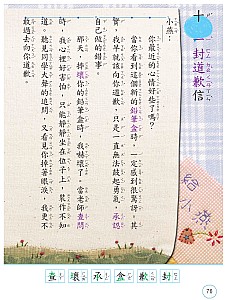 十 一封道歉信
給小燕
小燕：
你最近的心情好些了嗎？
當你看到這個新的鉛筆盒時，一定感到很驚訝，其
實，我早就該向你道歉，只是一直無法鼓起勇氣，承認
自己做的錯事。
那天，摔壞你的鉛筆盒時，我嚇壞了。當老師查問
時，我心裡好害怕，只能靜靜坐在位子上，裝作不知
道。聽見同學大聲的追問，又看見你掉著眼淚，我更不
敢過去向你道歉。
查 壞 承 盒 歉 封
76